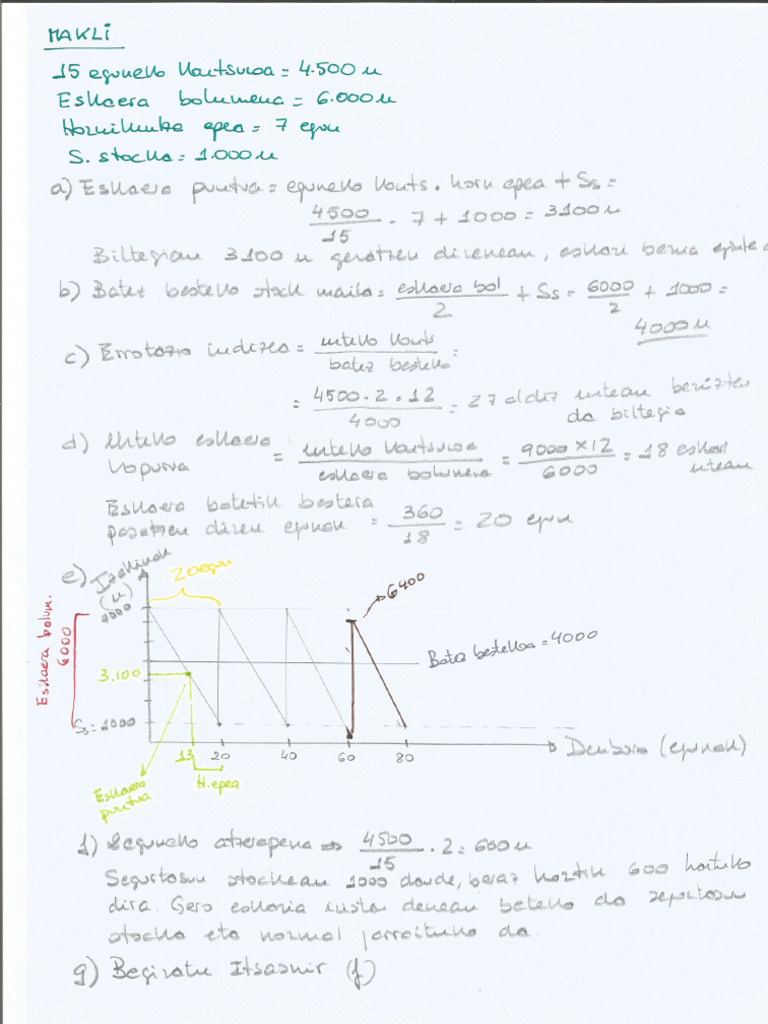 MAKLI
15 eguneko kontsumoa = 4.500 u
Eskaera bolumena = 6.000 u
Hornikuntza epea = 7 egun
S. stocka = 1.000 u
a) Eskaera puntua = eguneko konts. horn epea + Ss =
4500/15 · 7 + 1000 = 3100 u
Biltegian 3100 u geratzen direnean, eskari berria egin
b) Batez besteko stock maila = eskaera bol/2 + Ss = 6000/2 + 1000 =
4000 u
c) Errotazio indizea = urteko konts/batez besteko =
= 4500 · 2 · 12/4000 = 27 aldiz urtean berrizten
da biltegia
d) Urteko eskaera kopurua = urteko kontsumoa/eskaera bolumena = 9000 x 12/6000 = 18 eskari urtean
Eskaera batetik bestera
pasatzen diren egunak = 360/18 = 20 egun
e) Izakinak (u)
20 egun
7000
6400
Eskaera bolum. 6000
Batez bestekoa = 4000
3.100
Ss = 1000
13 20 40 60 80
Denbora (egunak)
Eskaera puntua
H. epea
f) 2 eguneko atzerapena => 4500/15 · 2 = 600 u
Segurtasun stockean 1000 daude, beraz hortik 600 hartuko
dira. Gero eskaria iristen denean beteko da segurtasun
stocka eta normal jarraituko da.
g) Begiratu Itsasnir (f)